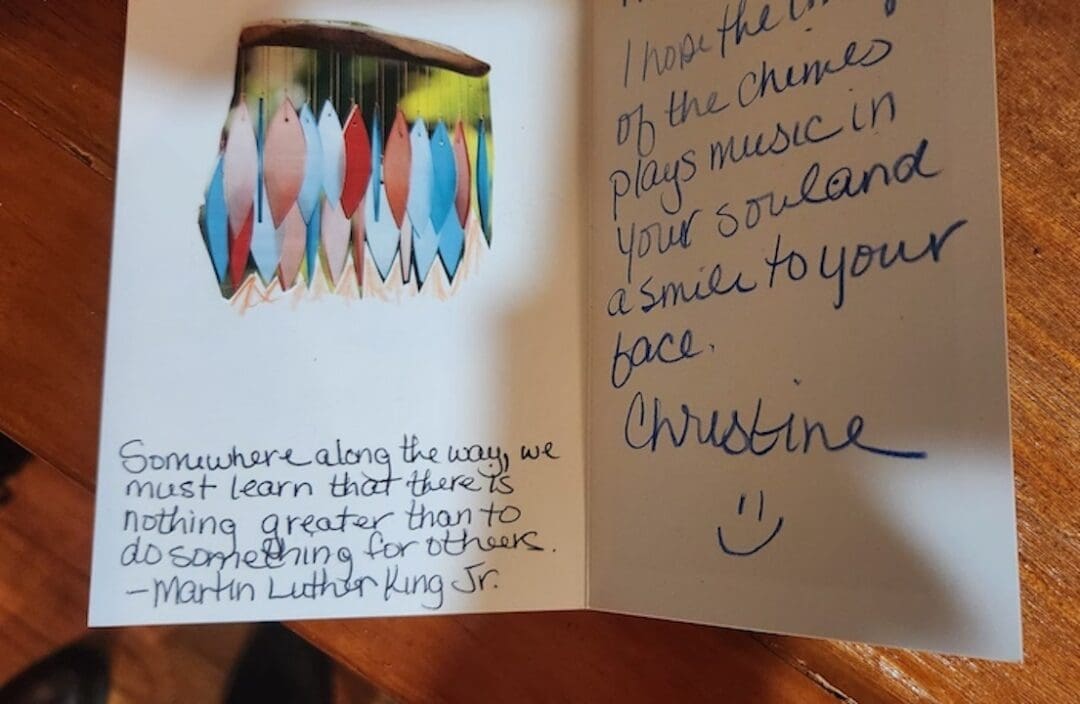 Somewhere along the way, we
must learn that there is
nothing greater than to
do something for others.
-Martin Luther King Jr.
I hope the
of the chimes
plays music in
your soul and
a smile to your
face.
Christine